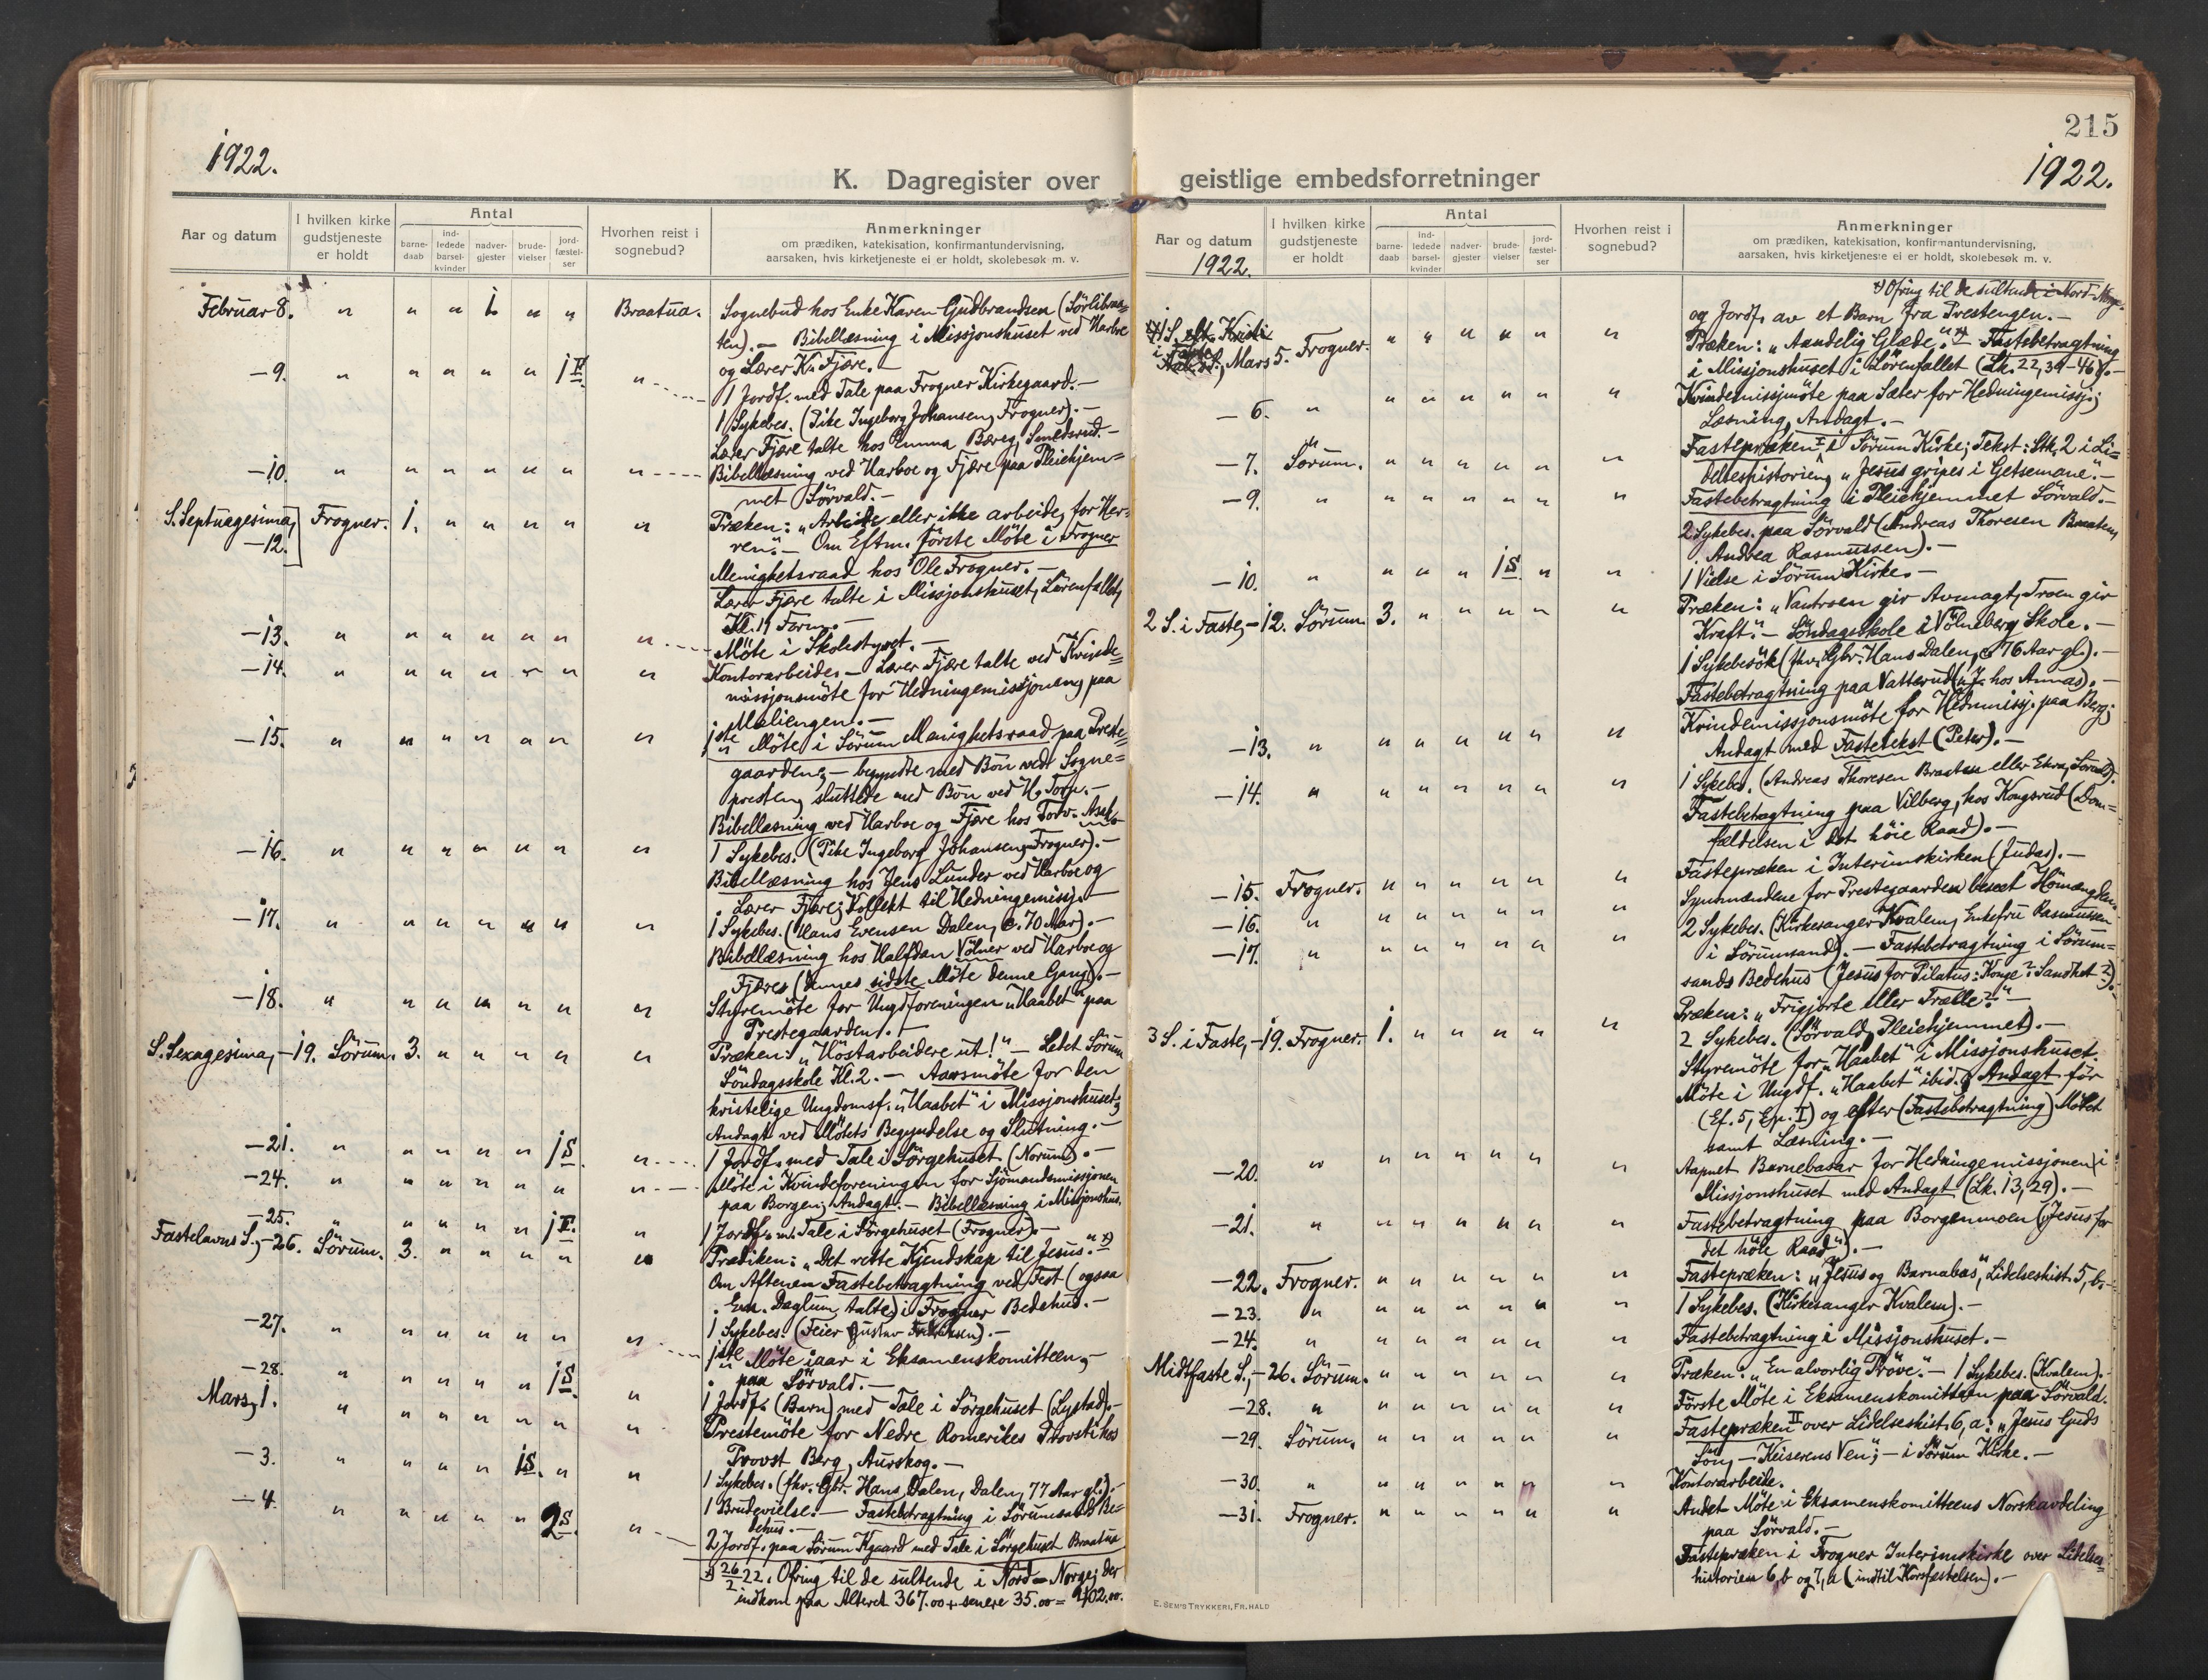 1922.
K. Dagregister over
Aar og datum
I hvilken kirke gudstjeneste er holdt
Antal
barne-daab
ind-ledede barsel-kvinder
nadver-gjester
brude-vielser
jord-fæstel-ser
Hvorhen reist i sognebud?
Anmerkninger
om prædiken, katekisation, konfirmantundervisning,
aarsaken, hvis kirketjeneste ei er holdt, skolebesøk m. v.
Februar 8. " " " 1. " " Braatua. Sognebud hos Enke Karen Gudbrandsen (Sörlibraa=
ten). — Bibellæsning i Missjonshuset ved Harboe
og Lærer K. Fjære. —
— 9. " " " " " 1 F. " 1 Jordf. med Tale paa Frogner Kirkegaard. —
1 Sykebes. (Pike Ingeborg Johansen, Frogner). —
Lærer Fjære talte hos Emma Bæreg, Smedsrud. —
— 10. " " " " " " " Bibellæsning ved Harboe og Fjære paa Pleiehjem=
met Sörvald. —
S. Septuagesima, — 12. Frogner. 1. " " " " " Præken: „Arbeide eller ikke arbeide, for Her=
ren." — Om Eftm. förste Möte i Frogner
Menighetsraad hos Ole Frogner. —
Lærer Fjære talte i Missjonshuset, Lörenfallet,
Kl. 11 Form. —
— 13. " " " " " " " Möte i Skolestyret. —
— 14. " " " " " " " Kontorarbeide. — Lærer Fjære talte ved Kvinde=
missjonsmöte for Hedningemissjonen, paa
Maliengen. —
— 15. " " " " " " " 1ste Möte i Sörum Menighetsraad paa Preste=
gaarden; — begyndte med Bön ved Sogne=
presten, sluttede med Bön ved H. Torp. —
Bibellæsning ved Harboe og Fjære hos Torv. Asak.
— 16. " " " " " " " 1 Sykebes. (Pike Ingeborg Johansen, Frogner). —
Bibellæsning hos Jens Lunder ved Harboe og
Lærer Fjære; Kollekt til Hedningemissj. —
— 17. " " " " " " " 1 Sykebes. (Hans Evensen Dalen, c. 70 Aar). —
Bibellæsning hos Halfdan Völner ved Harboe og
Fjære (Denes sidste Möte denne Gang). —
— 18. " " " " " " " Styremöte for Ungdforeningen „Haabet" paa
Prestegaarden. —
S. Sexagesima, — 19. Sörum. 3. " " " " " Præken: „Höstarbeidere ut!" — Ledet Sörum
Söndagsskole Kl. 2. — Aarsmöte for den
kristelige Ungdomsf. „Haabet" i Missjonshuset;
Andagt ved Mötets Begyndelse og Slutning. —
— 21. " " " " " 1 S. " 1 Jordf. med Tale i Sörgehuset (Norum). —
— 24. " " " " " " " Möte i Kvindeforeningen for Sjömandsmissjonen
paa Borgen; Andagt. — Bibellæsning i Missjonshus.
— 25. " " " " " 1 F. " 1 Jordf. m. Tale i Sörgehuset (Frogner). —
Fastelavns S., — 26. Sörum. 3. " " " " " Prædiken: „Det rette Kjendskap til Jesus." x)
Om Aftenen Fastebetragtning ved Fest (ogsaa
Em. Daglum talte) i Frogner Bedehus. —
— 27. " " " " " " " 1 Sykebes. (Feier Gustav Fredriksen). —
1ste Möte iaar i Eksamenskomitteen, —
paa Sörvald. —
— 28. " " " " " 1 S. " 1 Jordf. (Barn) med Tale i Sörgehuset (Lystad). —
Mars, 1. " " " " " " " Prestemöte for Nedre Romerikes Provsti hos
Provst Berg, Aurskog. —
— 3. " " " " 1 S. " " 1 Sykebes. (fhv. Gbr. Hans Dalen, Dalen, 77 Aar gl.). —
1 Brudevielse. — Fastebetragtning i Sörumsands Be=
dehus. —
— 4. " " " " " 2 S. " 2 Jordf. paa Sörum Kgaard med Tale i Sörgehuset Braatua
x) 26/2 22. Ofring til de sultende i Nord=Norge; der
indkom paa Alteret 367.00 + senere 35.00 = 402.00.
215
1922.
geistlige embedsforretninger
Aar og datum
1922.
I hvilken kirke gudstjeneste er holdt
Antal
barne-daab
ind-ledede barsel-kvinder
nadver-gjester
brude-vielser
jord-fæstel-ser
Hvorhen reist i sognebud?
Anmerkninger
om prædiken, katekisation, konfirmantundervisning,
aarsaken, hvis kirketjeneste ei er holdt, skolebesøk m. v.
x) Ofring til de sultende i Nord-Norge.
og Jordf. av et Barn fra Prestengen. —
1 S. i Faste, Mars 5. Frogner. " " " " " " Præken: „Aandelig Glæde." x) — Fastebetragtning
i Missjonshuset i Lörenfallet (Lk. 22, 39-46). —
— 6. " " " " " " " Kvindemissjmöte paa Sæter for Hedningemissj.;
Læsning, Andagt. —
— 7. Sörum. " " " " " " Fastepræken I i Sörum Kirke; Tekst: Stk. 2 i Li=
delseshistorien, „Jesus gripes i Getsemane." —
— 9. " " " " " " " Fastebetragtning i Pleiehjemmet Sörvald. —
2 Sykebes. paa Sörvald (Andreas Thoresen Braaten,
Andrea Rasmussen). —
— 10. " " " " 1 S. " " 1 Vielse i Sörum Kirke. —
2 S. i Faste, — 12. Sörum. 3. " " " " " Præken: „Vantroen gir Avmagt, Troen gir
Kraft." — Söndagsskole i Völneberg Skole. —
1 Sykebesök (fhv. Gbr. Hans Dalen, 76 Aar gl.). —
Fastebetragtning paa Vatterud ( hos Annas). —
— 13. " " " " " " " Kvindemissjonsmöte for Hednmissj. paa Berg;
Andagt med Fastetekst (Peter). —
— 14. " " " " " " " 1 Sykebes. (Andreas Thoresen Braaten eller Ekra, Sörvald).
Fastebetragtning paa Vilberg, hos Kongsrud (Dom=
fældelsen i det höie Raad). —
— 15. Frogner. " " " " " " Fastepræken i Interimskirken (Judas). —
— 16. " " " " " " " Synsmændene for Prestegaarden beseet Hömængden.
— 17. " " " " " " " 2 Sykebes. (Kirkesanger Kvalem, Enkefru Rasmussen
i Sörumsand). — Fastebetragtning i Sörum=
sands Bedehus (Jesus for Pilatus: Konge? Sandhet?).
3 S. i Faste, — 19. Frogner. 1. " " " " " Præken: „Frigjorte eller Trælle?" —
2 Sykebes. (Sörvald, Pleiehjemmet). —
Styremöte for „Haabet" i Missjonshuset.
Möte i Ungdf. „Haabet" ibid.; Andagt för
(Ef. 5, Ep. I) og efter (Fastebetragtning) Mötet
samt Læsning. —
— 20. " " " " " " " Aapnet Barnebasar for Hedningemissjonen i
Missjonshuset med Andagt (Lk. 13, 29). —
— 21. " " " " " " " Fastebetragtning paa Borgenmoen („Jesus for
det höie Raad"). —
— 22. Frogner. " " " " " " Fastepræken: „Jesus og Barnabas", Lidelseshist. 5, b. —
— 23. " " " " " " " 1 Sykebes. (Kirkesanger Kvalem). —
— 24. " " " " " " " Fastebetragtning i Missjonshuset. —
Midtfaste S., — 26. Sörum. " " " " " " Præken: „En alvorlig Pröve." — 1 Sykebes. (Kvalem). —
— 28. " " " " " " " Förste Möte i Eksamenskomitteen paa Sörvald.
— 29. Sörum. " " " " " " Fastepræken II over Lidelseshist. 6, a: „Jesus Guds
Sön, — Keiserens Ven"; — i Sörum Kirke. —
— 30. " " " " " " " Kontorarbeide.
— 31. Frogner. " " " " " " Andet Möte i Eksamenskomitteens Norskavdeling
paa Sörvald. —
Fastepræken i Frogner Interimskirke over Lidelses=
historien 6, b og 7, a (indtil Korsfæstelsen). —
E. SEM'S TRYKKERI, FR.HALD